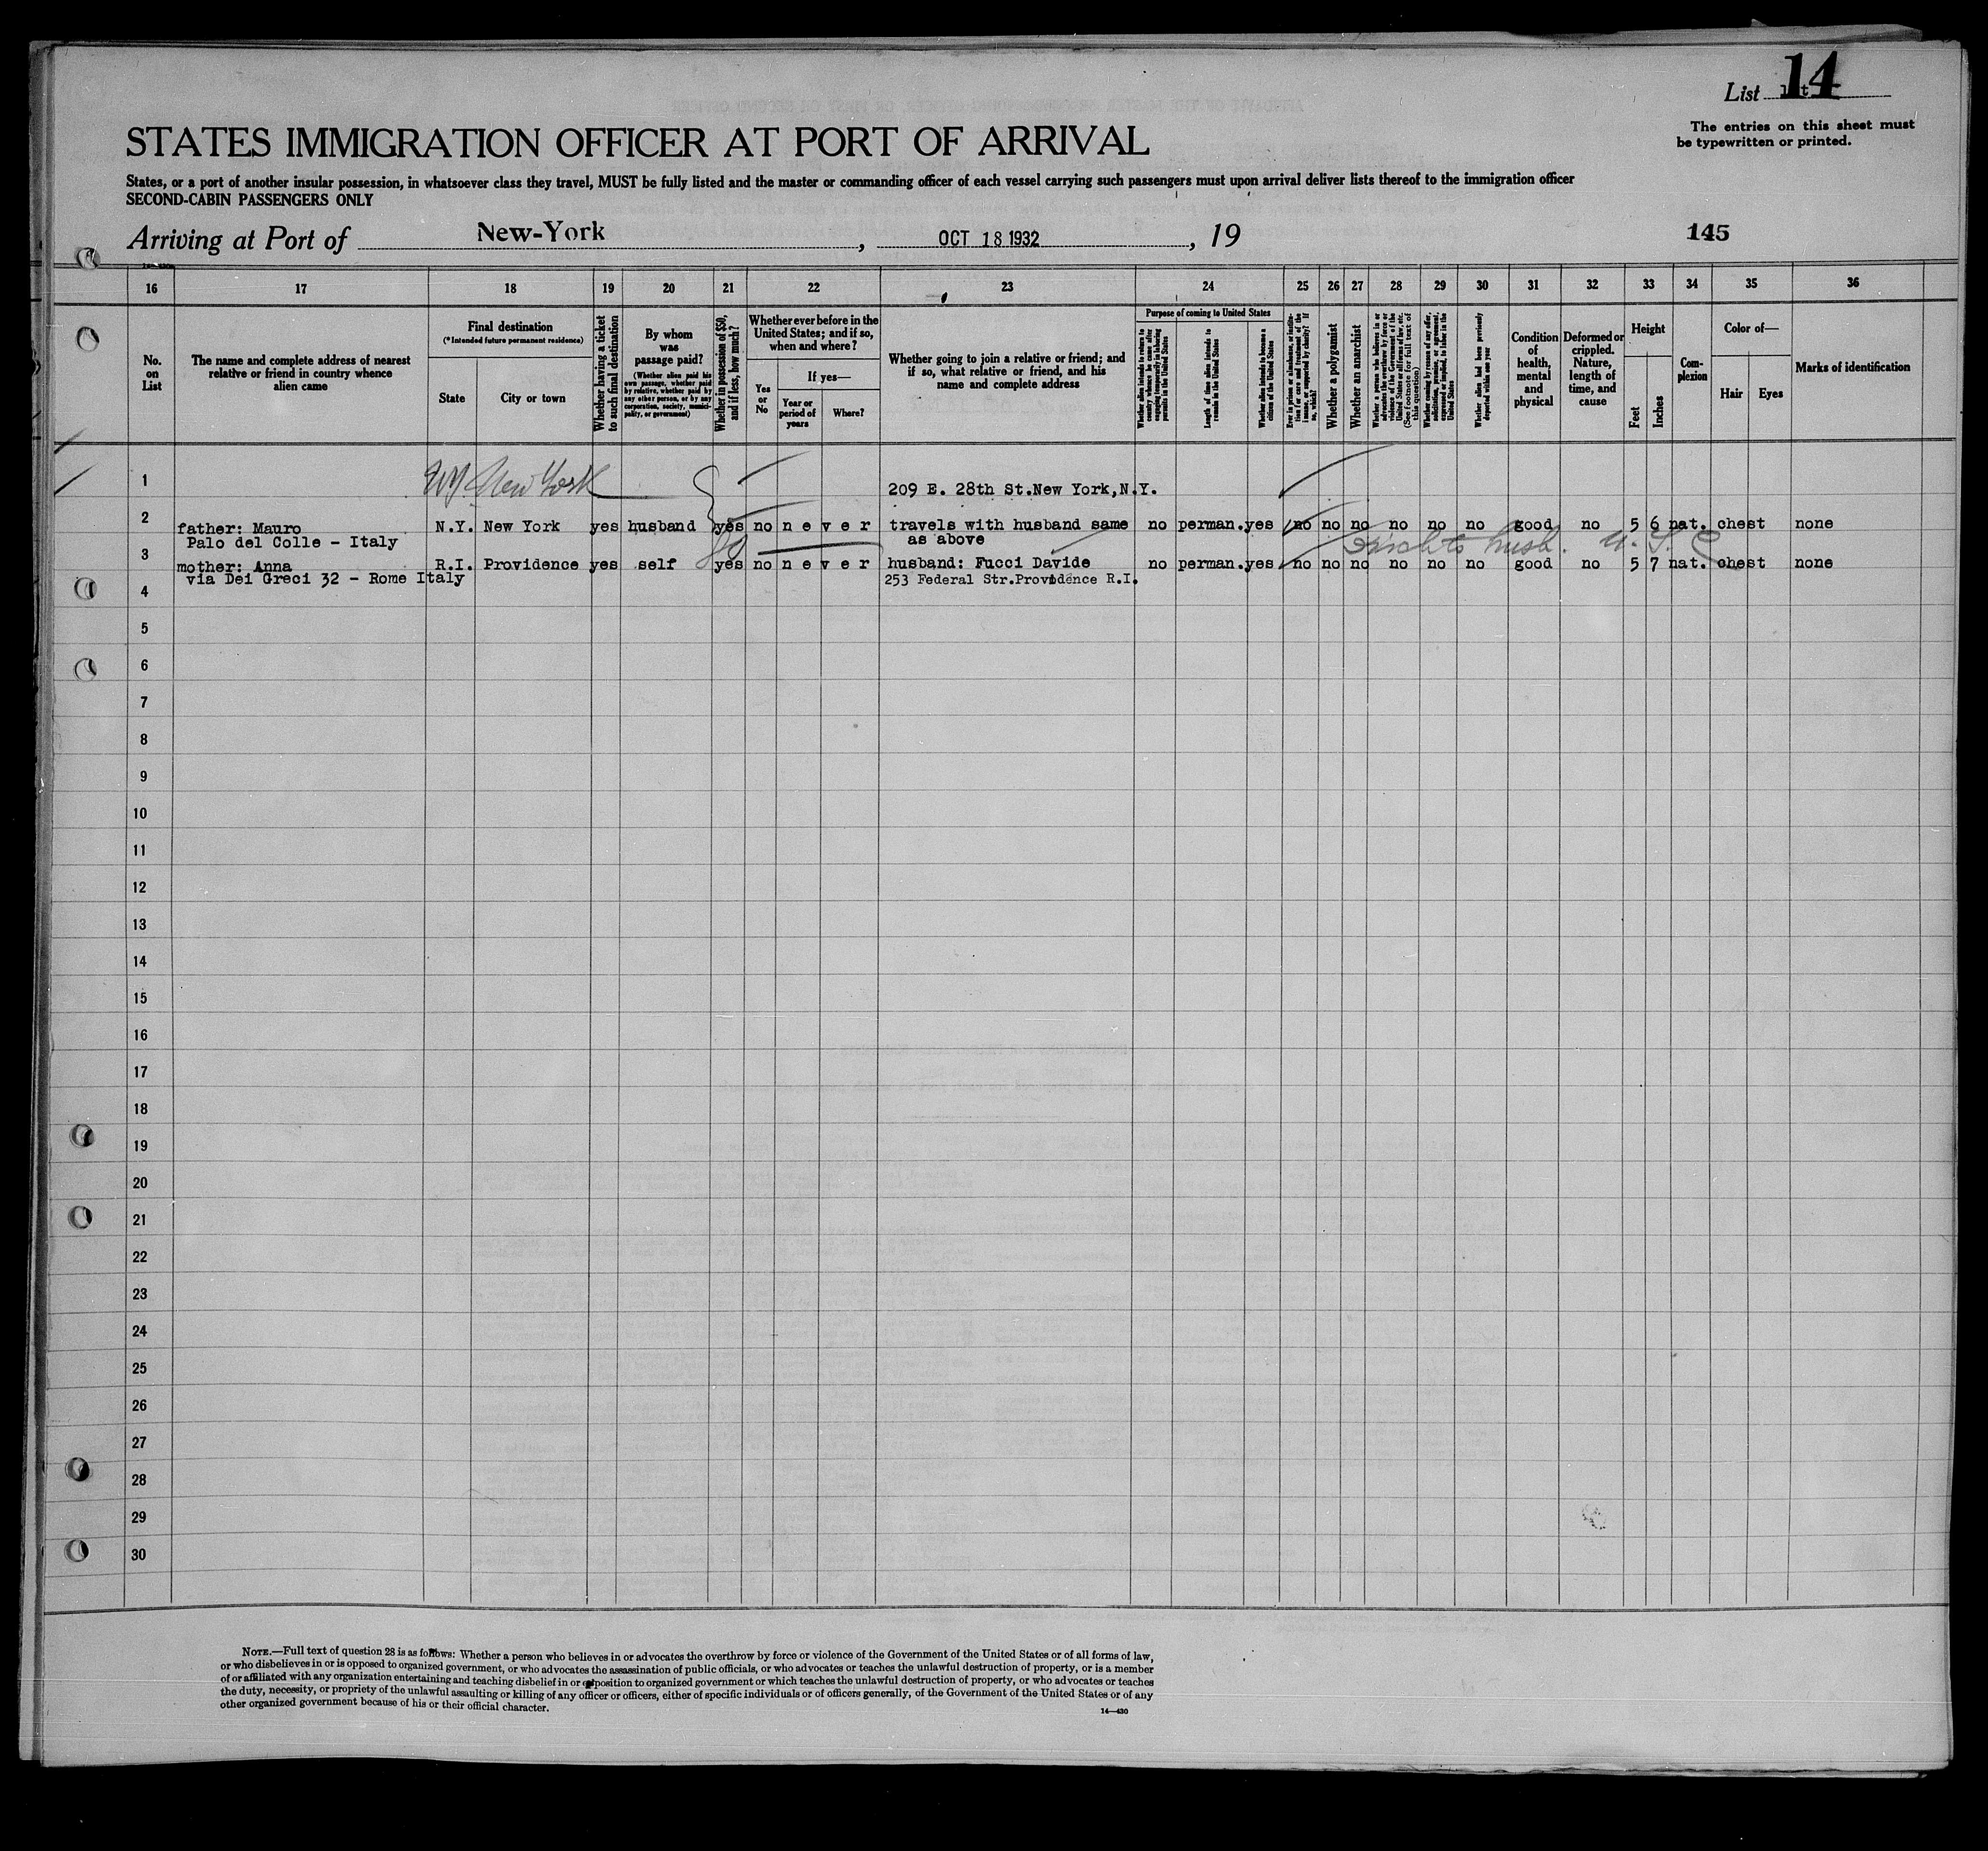 List 14
The entries on this sheet must
be typewritten or printed.
STATES IMMIGRATION OFFICER AT PORT OF ARRIVAL
States, or a port of another insular possession, in whatsoever class they travel, MUST be fully listed and the master or commanding officer of each vessel carrying such passengers must upon arrival deliver lists thereof to the immigration officer
SECOND-CABIN PASSENGERS ONLY
Arriving at Port of New-York, OCT 18 1932, 19
145
16 17 18 19 20 21 22 23 24 25 26 27 28 29 30 31 32 33 34 35 36
No.
on
List
The name and complete address of nearest
relative or friend in country whence
alien came
Final destination
(*Intended future permanent residence)
State
City or town
Whether having a ticket
to such final destination
By whom
was
passage paid?
(Whether alien paid his
own passage, whether paid
by relative, whether paid by
any other person, or by any
corporation, society, munici-
pality, or government)
Whether in possession of $50,
and if less, how much?
Whether ever before in the
United States; and if so,
when and where?
Yes
or
No
If yes—
Year or
period of
years
Where?
Whether going to join a relative or friend; and
if so, what relative or friend, and his
name and complete address
Purpose of coming to United States
Whether alien intends to return to
country whence he came after
engaging temporarily in laboring
pursuits in the United States
Length of time alien intends to
remain in the United States
Whether alien intends to become a
citizen of the United States
Ever in prison or almshouse, or institu-
tion for care and treatment of the
insane, or supported by charity? If
so, which?
Whether a polygamist
Whether an anarchist
Whether a person who believes in or
advocates the overthrow by force or
violence of the Government of the
United States or all forms of law, etc.
(See footnote for full text of
this question)
Whether coming by reason of any offer,
solicitation, promise, or agreement,
expressed or implied, to labor in the
United States
Whether alien had been previously
deported within one year
Condition
of
health,
mental
and
physical
Deformed or
crippled.
Nature,
length of
time, and
cause
Height
Feet
Inches
Com-
plexion
Color of—
Hair
Eyes
Marks of identification
1 NY New York 209 E. 28th St.New York,N.Y.
2 father: Mauro N.Y. New York yes husband yes no never travels with husband same no perman. yes no no no no no no good no 5 6 nat. chest none
Palo del Colle - Italy as above
husb. U.S.C
3 mother: Anna R.I. Providence yes self yes no never husband: Fucci Davide no perman. yes no no no no no no good no 5 7 nat. chest none
via Dei Greci 32 - Rome Italy 253 Federal Str.Providence R.I.
4
5
6
7
8
9
10
11
12
13
14
15
16
17
18
19
20
21
22
23
24
25
26
27
28
29
30
NOTE.—Full text of question 28 is as follows: Whether a person who believes in or advocates the overthrow by force or violence of the Government of the United States or of all forms of law,
or who disbelieves in or is opposed to organized government, or who advocates the assassination of public officials, or who advocates or teaches the unlawful destruction of property, or is a member
of or affiliated with any organization entertaining and teaching disbelief in or opposition to organized government or which teaches the unlawful destruction of property, or who advocates or teaches
the duty, necessity, or propriety of the unlawful assaulting or killing of any officer or officers, either of specific individuals or of officers generally, of the Government of the United States or of any
other organized government because of his or their official character.
14—430